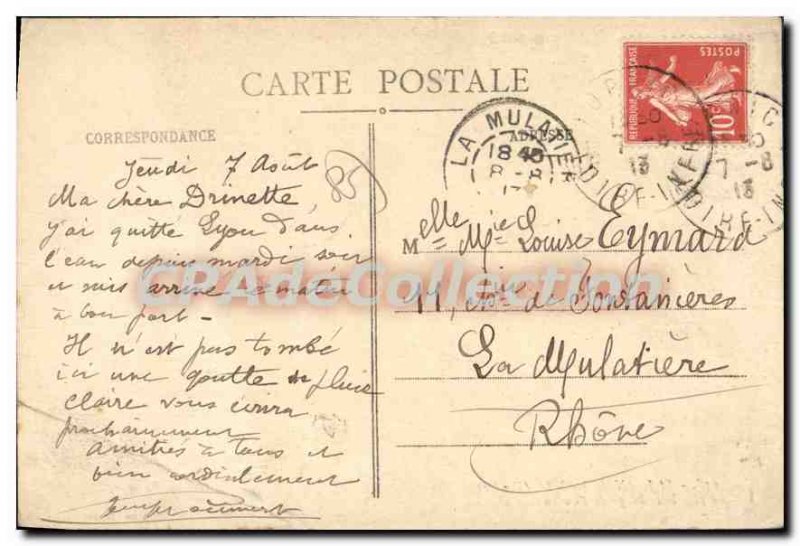 CARTE POSTALE
CORRESPONDANCE
ADRESSE
Jeudi 7 Août
Ma chère Drinette,
j'ai quitté Lyon dans
l'eau depuis mardi soir
et suis arrivé ce matin
à bon port -
Il n'est pas tombé
ici une goutte de pluie
Claire vous écrira
prochainement
amitiés à tous et
bien cordialement
85
LA MULATIÈRE
18 45
8-8
13
7-8
13
LOIRE-INFRE
REPUBLIQUE FRANÇAISE
POSTES
10c
Melle Mie Louise Eymard
11, de Fontanières
La Mulatière
Rhône
CPAdeCollection